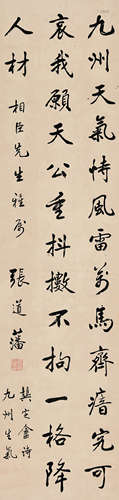 九州天氣恃風雷萬馬齊瘖究可
哀我願天公重抖擻不拘一格降
人材 相臣先生雅屬 張道藩
龔定盦詩
九州生氣